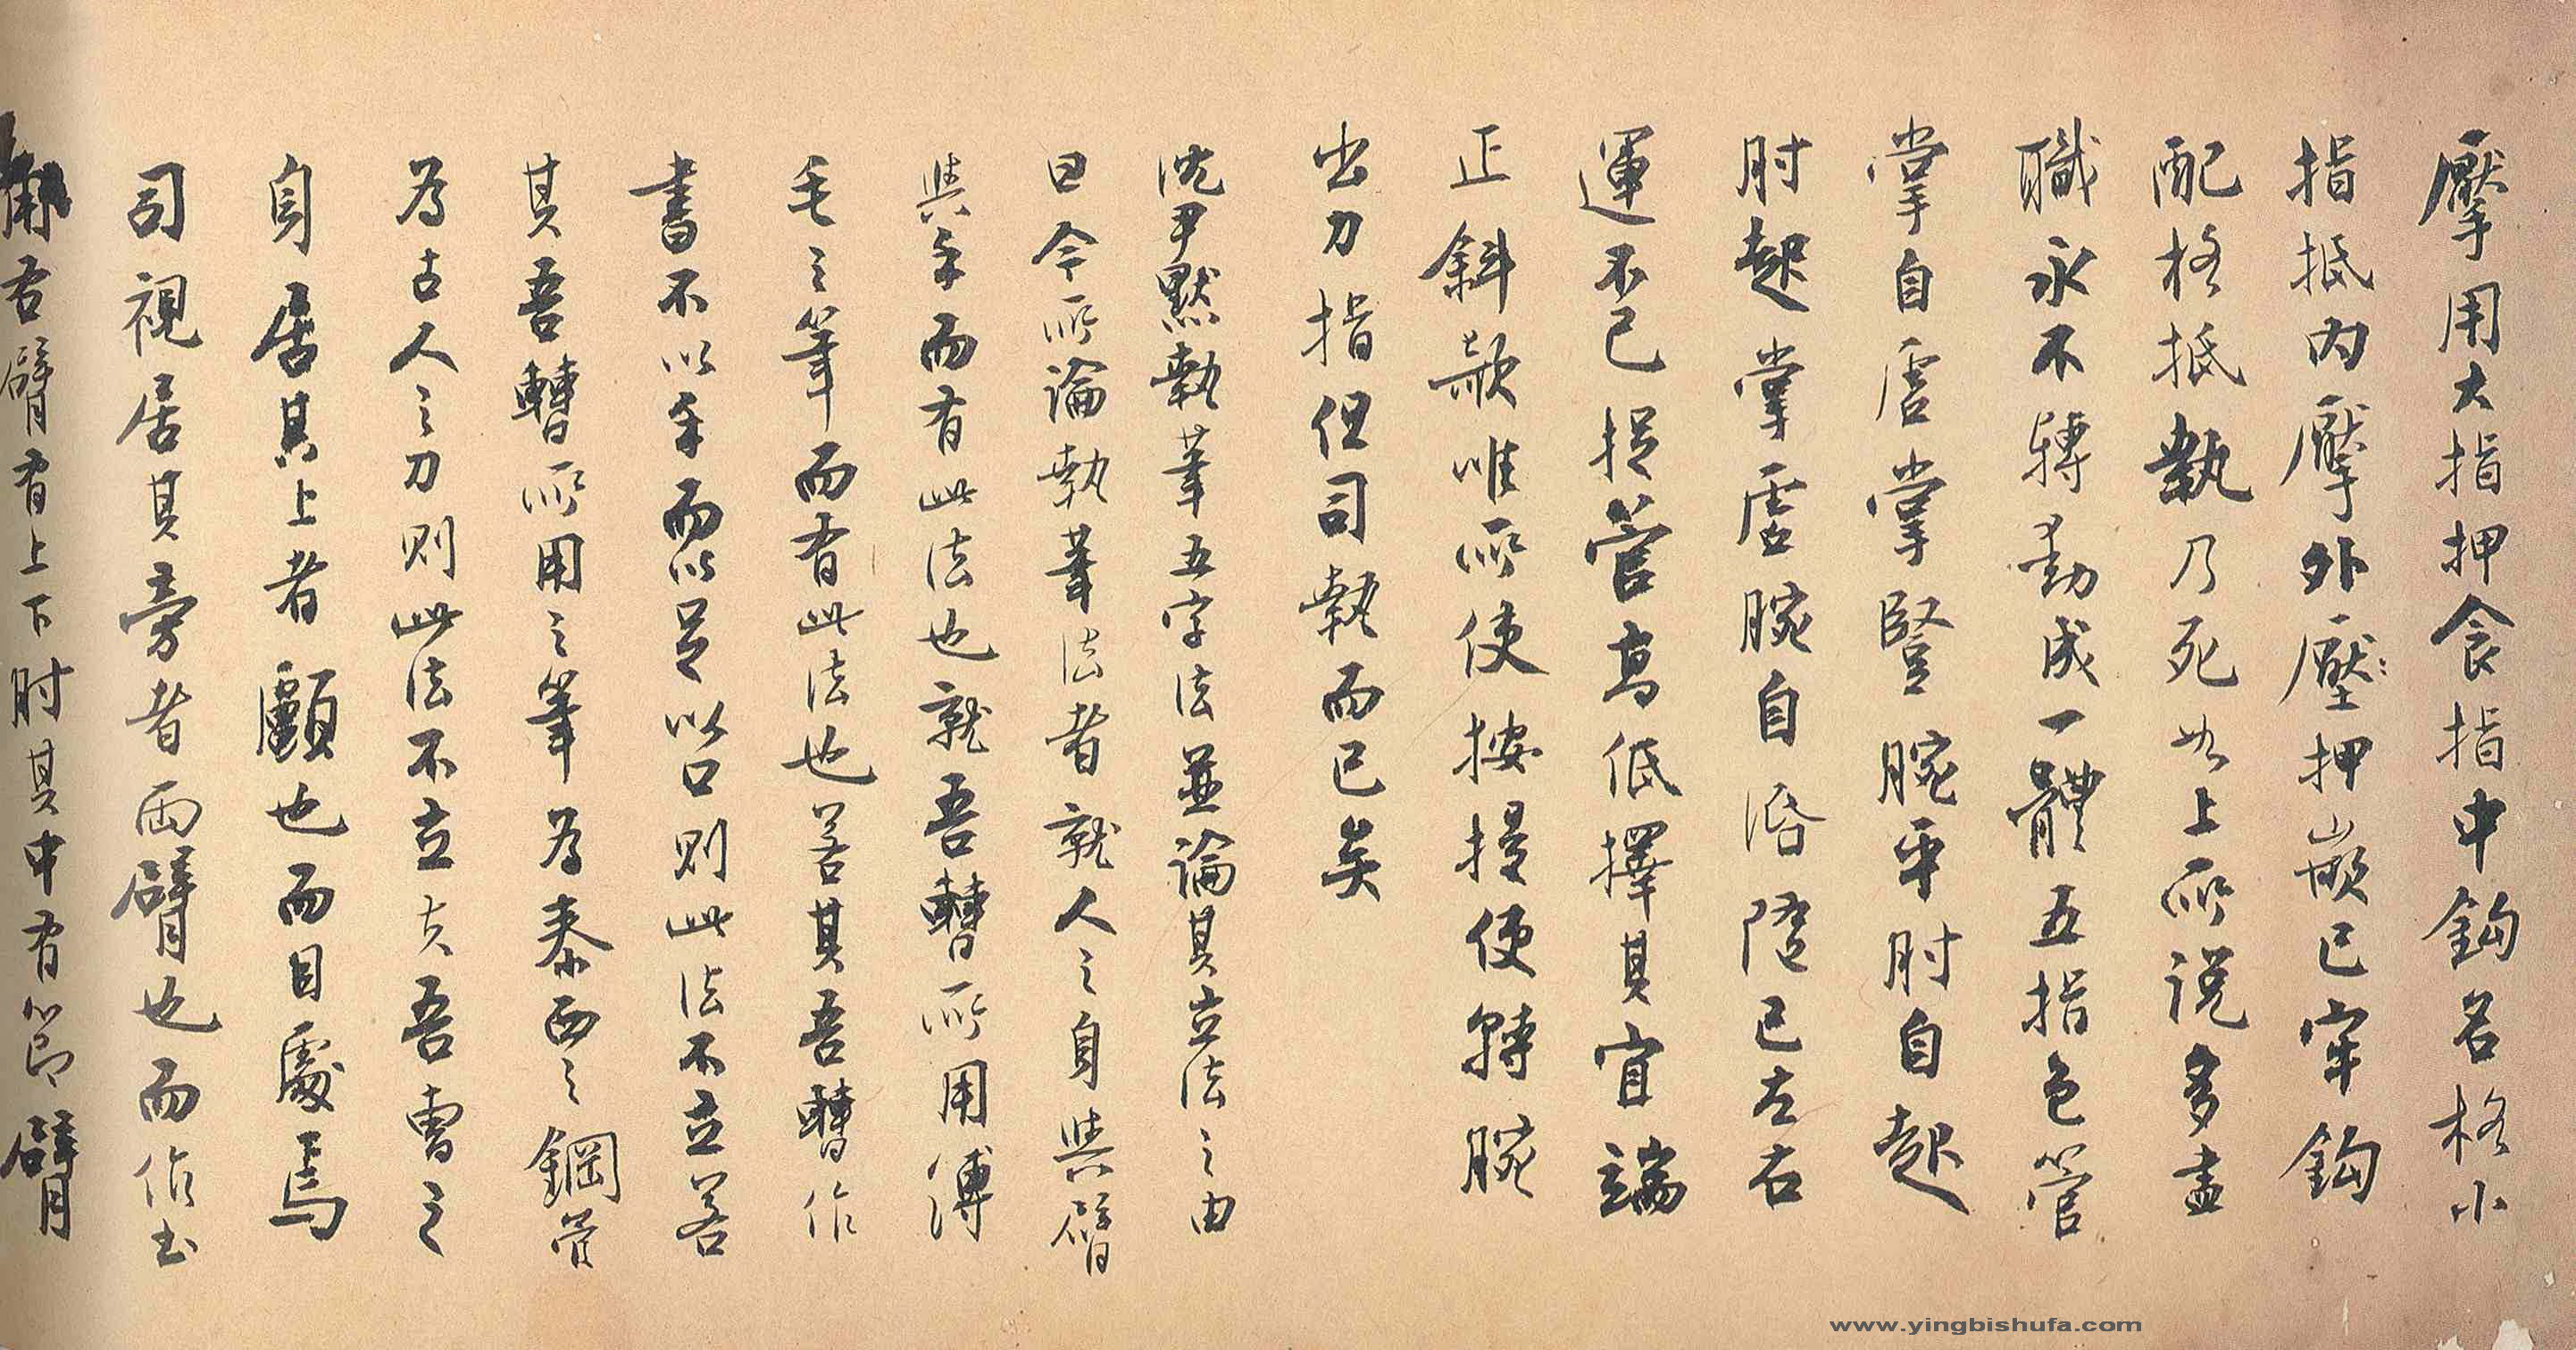 擪用大指押食指中鈎名格小
指抵內擪外壓押嵌已牢鈎
配格抵執乃死如上所說多盡
職永不轉動成一體五指包管
掌自虛掌豎腕平肘自起
肘起掌虛腕自活隨己左右
運不已捉管高低擇其宜端
正斜欹唯所使按提使轉腕
出力指但司執而已矣
沈尹默執筆五字法並論其立法之由
曰今所論執筆法者就人之身與臂
與手而有此法也就吾曹所用溥
毛之筆而有此法也若其吾曹作
書不以手而以足以口則此法不立若
其吾曹所用之筆為泰西之鋼管
為古人之刀則此法不立夫吾曹之
司視居其旁者兩臂也而作書
身居其上者顱也而目處焉
用右臂有上下肘其中有節臂
www.yingbishufa.com